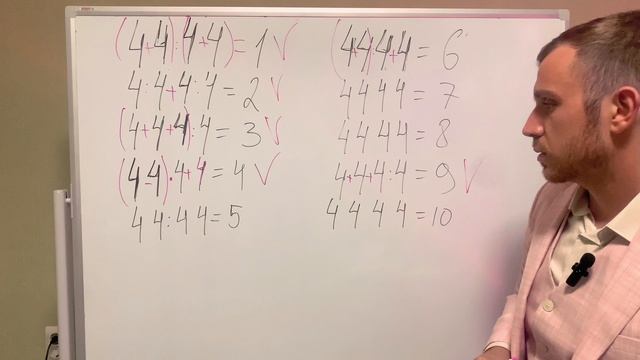 (4+4):(4+4)=1 V
4:4+4:4=2 V
(4+4+4):4=3 V
(4-4)·4+4=4 V
44:44=5
(4+4)4+4=6
4444=7
4444=8
4+4+4:4=9 V
4444=10